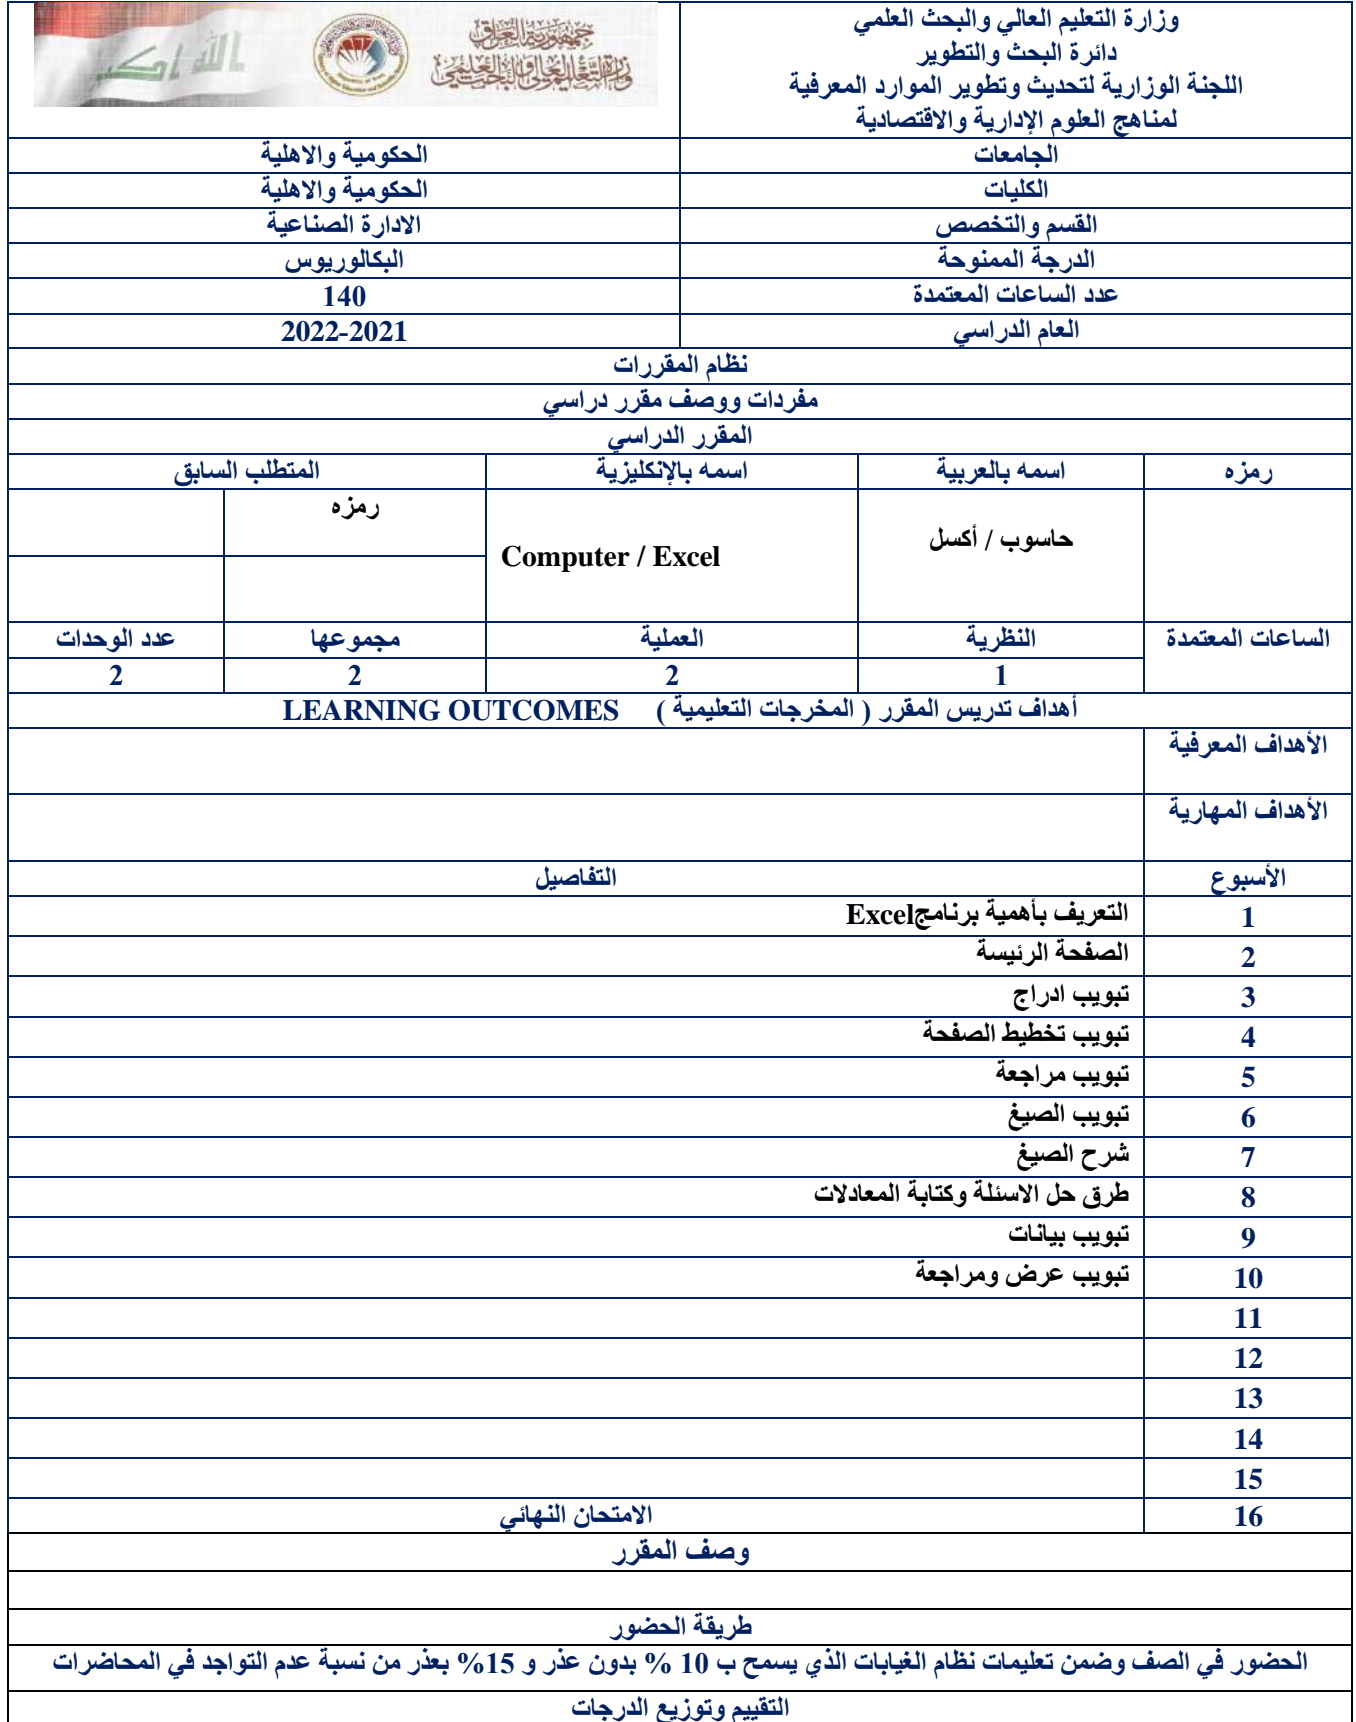 وزارة التعليم العالي والبحث العلمي
دائرة البحث والتطوير
اللجنة الوزارية لتحديث وتطوير الموارد المعرفية
لمناهج العلوم الإدارية والاقتصادية
الله اكبر
جمهورية العراق
وزارة التعليم العالي والبحث العلمي
الجامعات الحكومية والاهلية
الكليات الحكومية والاهلية
القسم والتخصص الادارة الصناعية
الدرجة الممنوحة البكالوريوس
عدد الساعات المعتمدة 140
العام الدراسي 2021-2022
نظام المقررات
مفردات ووصف مقرر دراسي
المقرر الدراسي
رمزه اسمه بالعربية اسمه بالإنكليزية المتطلب السابق
رمزه
حاسوب / أكسل Computer / Excel
الساعات المعتمدة النظرية العملية مجموعها عدد الوحدات
1 2 2 2
أهداف تدريس المقرر ( المخرجات التعليمية ) LEARNING OUTCOMES
الأهداف المعرفية
الأهداف المهارية
الأسبوع التفاصيل
1 التعريف بأهمية برنامجExcel
2 الصفحة الرئيسة
3 تبويب ادراج
4 تبويب تخطيط الصفحة
5 تبويب مراجعة
6 تبويب الصيغ
7 شرح الصيغ
8 طرق حل الاسئلة وكتابة المعادلات
9 تبويب بيانات
10 تبويب عرض ومراجعة
11
12
13
14
15
16 الامتحان النهائي
وصف المقرر
طريقة الحضور
الحضور في الصف وضمن تعليمات نظام الغيابات الذي يسمح ب 10 % بدون عذر و 15% بعذر من نسبة عدم التواجد في المحاضرات
التقييم وتوزيع الدرجات